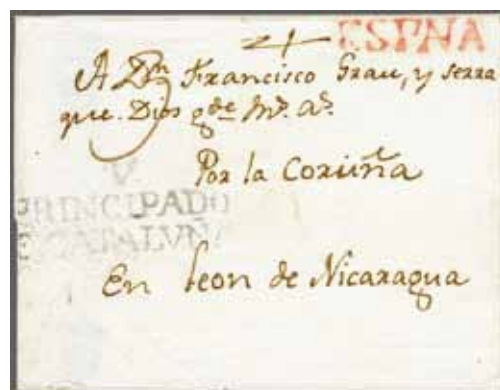 ESPNA
A Dn Francisco Grau, y serra
que Dios gde ms. as.
Por la Coruña
V
PRINCIPADO
CATALVÑA
En leon de Nicaragua